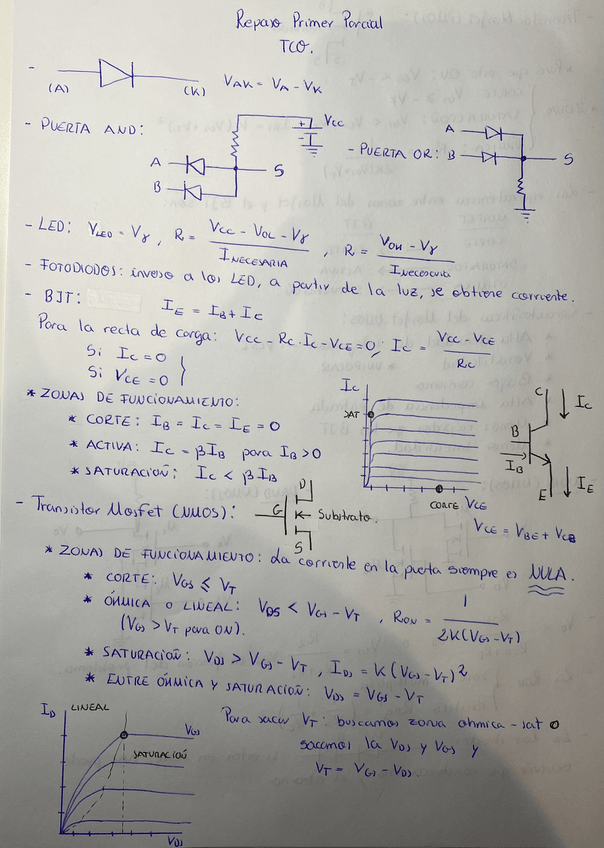 Repaso Primer Parcial
TCO.
- (A) (K) VAK = VA - VK
- PUERTA AND: Vcc
A
B
S
- PUERTA OR:
A
B
S
- LED: VLED = Vγ, R = (Vcc - VOL - Vγ) / INECESARIA, R = (VOH - Vγ) / INECESARIA
- FOTODIODOS: inverso a los LED, a partir de la luz, se obtiene corriente.
- BJT: IE = IB + IC
Para la recta de carga: Vcc - Rc·Ic - VCE = 0; Ic = (Vcc - VCE) / Rc
Si Ic = 0
Si VCE = 0
* ZONAS DE FUNCIONAMIENTO:
* CORTE: IB = IC = IE = 0
* ACTIVA: IC = βIB para IB > 0
* SATURACIOÑ: IC < βIB
Ic
SAT
CORTE VCE
C
Ic
B
IB
E
IE
VCE = VBE + VCB
- Transistor Mosfet (NMOS): G D S Substrato.
* ZONAS DE FUNCIONAMIENTO: La corriente en la puerta siempre es NULA.
* CORTE: VGS ≤ VT
* ÓHMICA O LINEAL: VDS < VGS - VT, RON = 1 / 2K(VGS - VT)
(VGS > VT para ON).
* SATURACIOÑ: VDS > VGS - VT, IDS = K(VGS - VT)2
* ENTRE ÓHMICA Y SATURACIOÑ: VDS = VGS - VT
ID LINEAL
VGS
SATURACIOÑ
VDS
Para sacar VT: buscamos zona ohmica - sat o
sacamos la VDS y VGS y
VT = VGS - VDS.